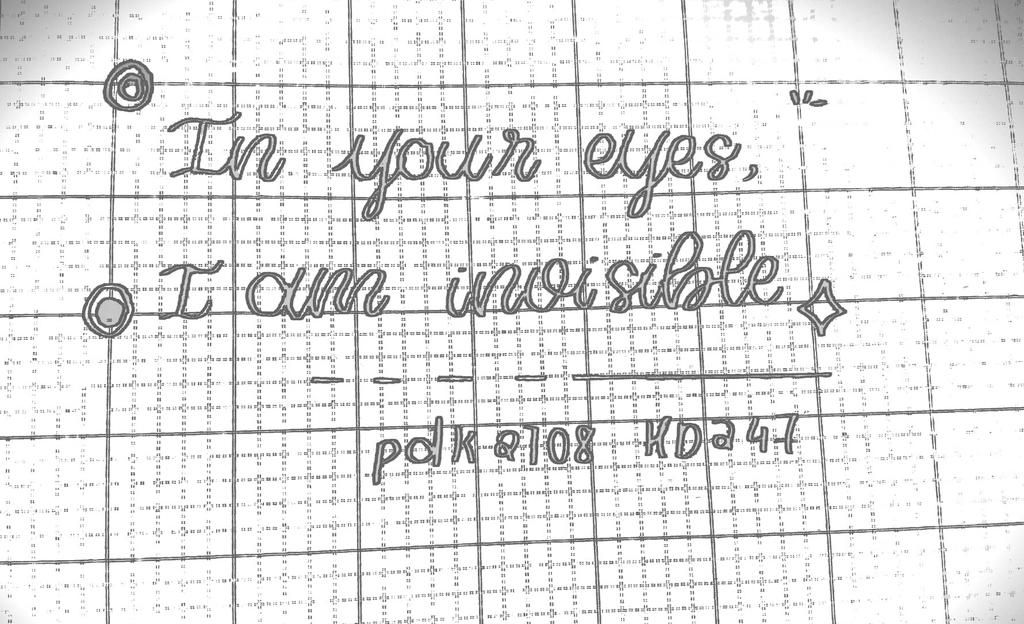 In your eyes,
I am invisible
pdka708 HDa47